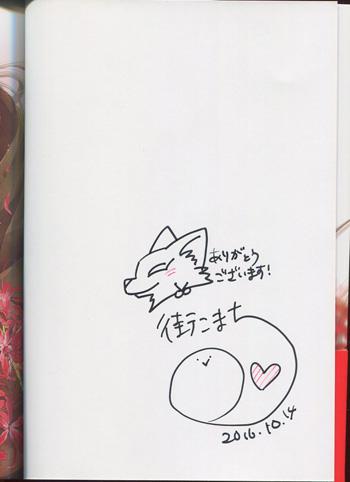 ありがとう
ございます!
街こまち
2016.10.14